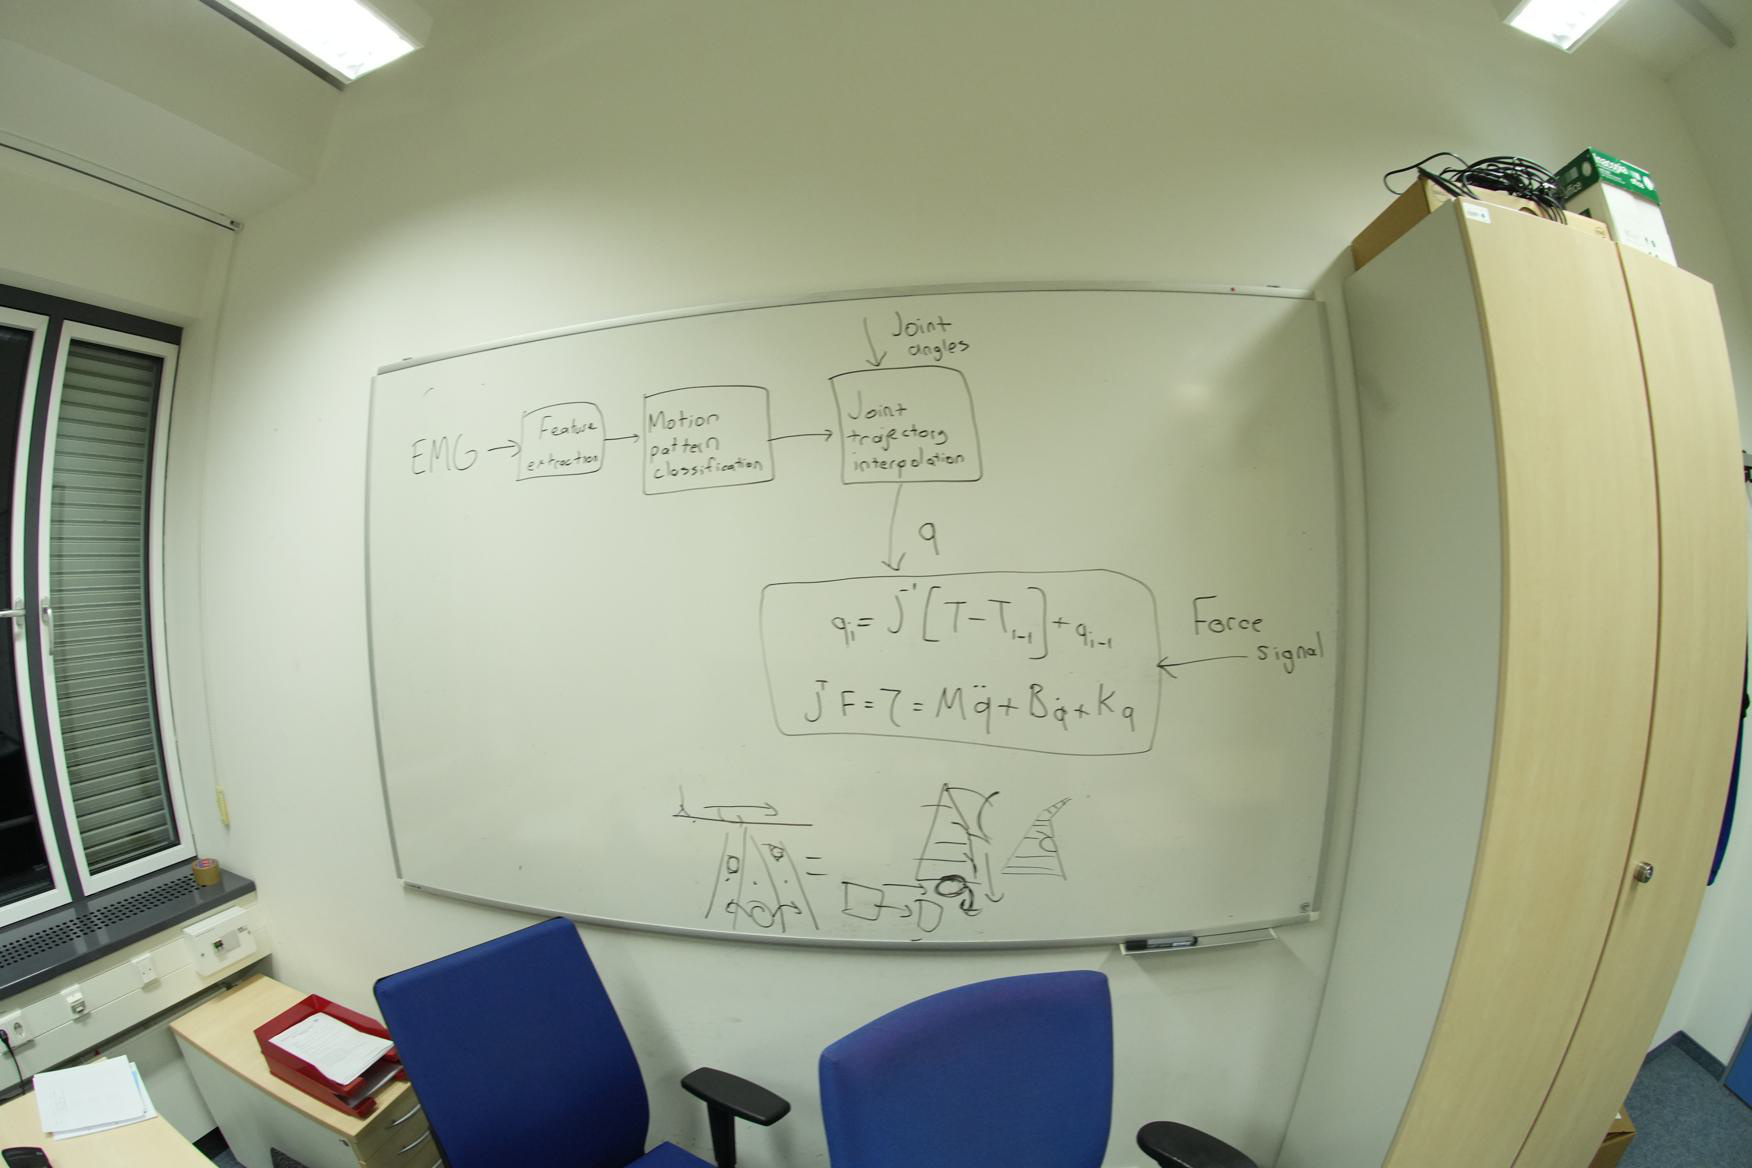 Joint
angles
EMG
Feature
extraction
Motion
pattern
classification
Joint
trajectory
interpolation
q
qᵢ = J⁻¹[T - Tᵢ₋₁] + qᵢ₋₁
Force
signal
JᵀF = τ = Mq̈ + Bq̇ + Kq